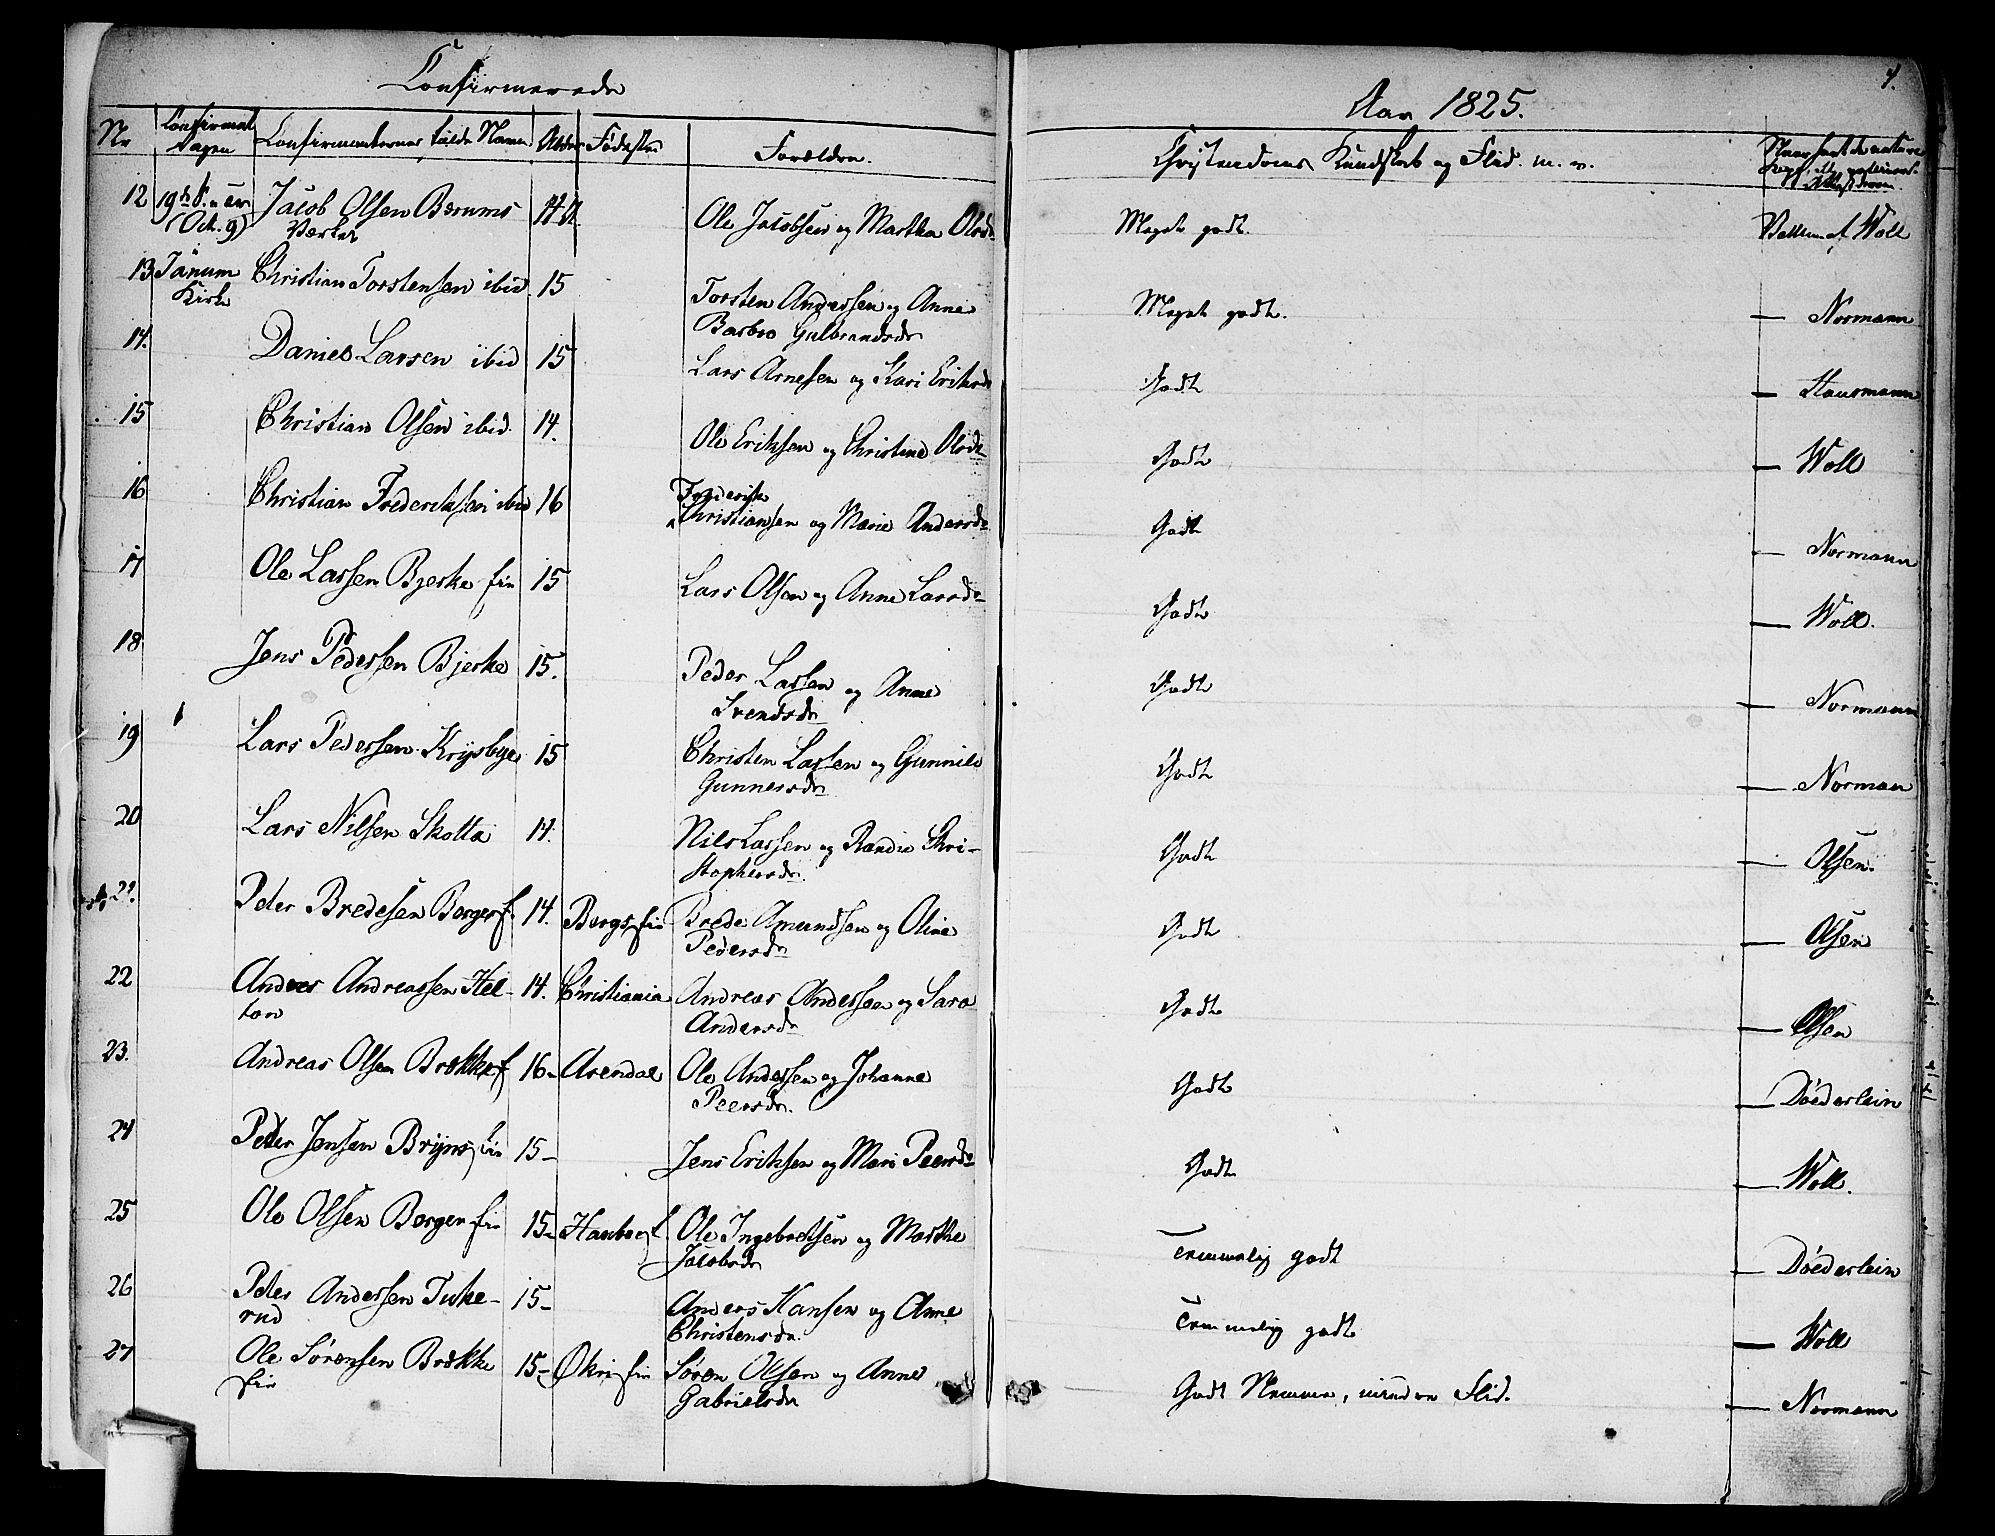 Confirmerede
Aar 1825.
4.
Nr
Confirmat Dagen
Confirmanternes fulde Navne
Alder
Fødested
Forældre.
Christendoms Kundskab og Flid m. v.
12 19de S. (Oct. 9) Jacob Olsen Bærums Værket 14 Ole Jacobsen og Martha Olsdr Meget godt. Vaccin. af Woll
13 Tanum Kirke Christian Torstensen ibid 15 Torsten Anderssen og Anne Barbro Gulbrandsdr Meget godt. — Normann
14. Daniel Larsen ibid 15 Lars Arnesen og Kari Eriksdr Godt — Hausmann
15 Christian Olsen ibid. 14. Ole Eriksen og Christine Olsdr Godt — Woll
16 Christian Frederiksen ibid 16 Frederik Christiansen og Marie Andersdr Godt — Normann
17 Ole Larsen Bjerke 15 Lars Olsen og Anne Larsdr Godt — Woll.
18 Jens Pedersen Bjerke 15. Peder Larsen og Anne Svendsdr Godt — Normann
19 Lars Pedersen Krysbye 15 Christen Larsen og Gunnild Gunnersdr Godt — Norman
20 Lars Nilsen Skotta 14. Nils Larsen og Randie Christophersdr. Godt — Olsen.
21 Peder Bredesen Borger 14. Brede Amundsen og Oline Pedersdr Godt — Olsen
22 Anders Andreassen Heltan 14. Christiania Andreas Anderssen og Sara Andersdr Godt — Olsen
23. Andreas Olsen Brække 16- Arendal Ole Anderssen og Johanne Peersdr. Godt — Döederlein
24 Peder Jensen Bryns 15- Jens Eriksen og Mari Peersdr Godt — Woll.
25 Ole Olsen Borgen 15- Ole Ingebretsen og Marthe Jacobsdr Temmelig godt — Döederlein
26 Peder Andersen Tukerud 15- Anders Hansen og Anne Christensdr. Temmelig godt — Woll
27 Ole Sørensen Brække 15- Økri Søren Olsen og Anne Gabrielsdr Godt Nemme, mindre Flid. — Normann